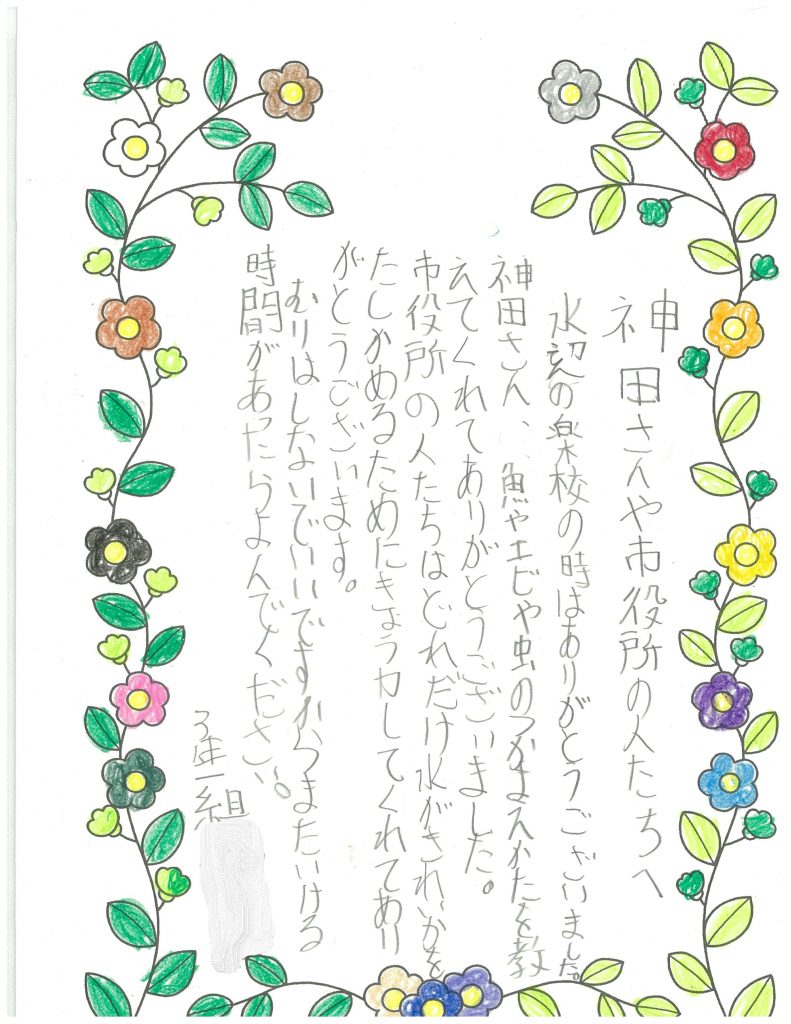 神田さんや市役所の人たちへ
水辺の楽校の時はありがとうございました。
神田さん、魚やエビや虫のつかまえかたを教
えてくれてありがとうございました。
市役所の人たちはどれだけ水がきれいかを
たしかめるためにきょう力してくれてあり
がとうございます。
むりはしないでいいですからまたいける
時間があったらよんでください。
3年一組